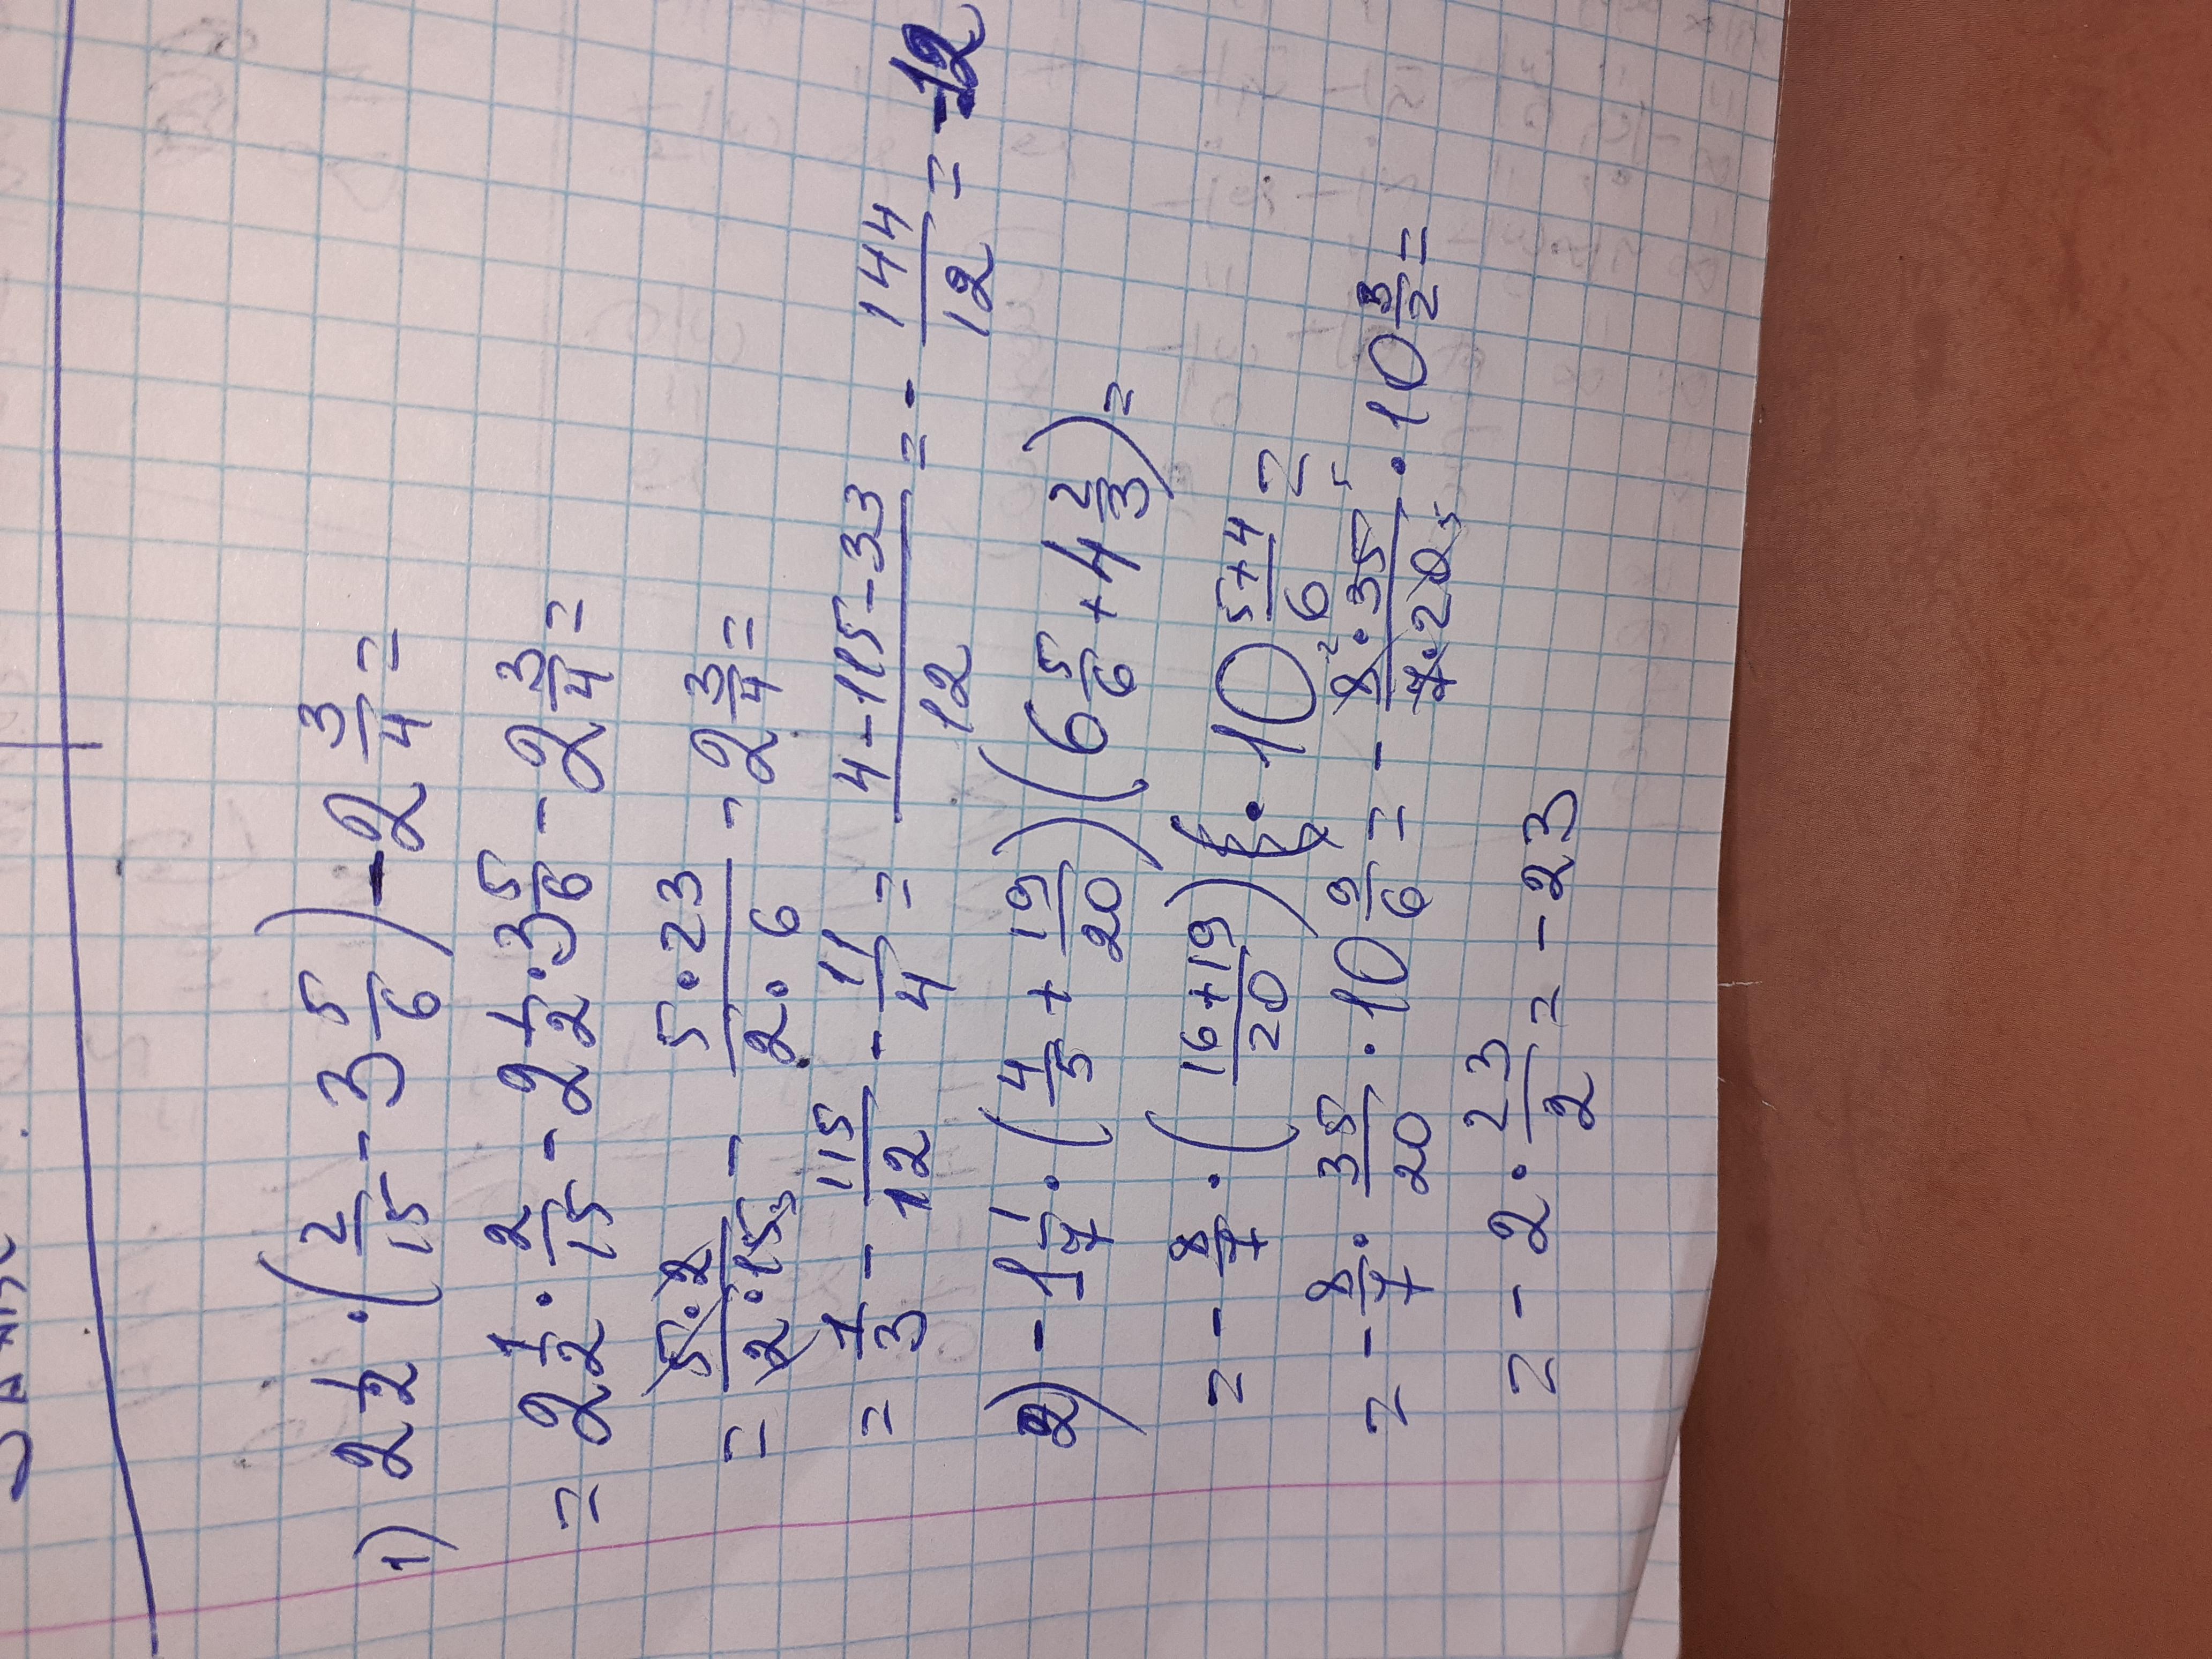 1) 2 1/2 · (2/15 - 3 5/6) - 2 3/4 =
= 2 1/2 · 2/15 - 2 1/2 · 3 5/6 - 2 3/4 =
= 5·2/2·15 3 - 5·23/2·6 - 2 3/4 =
= 1/3 - 115/12 - 11/4 = 4-115-33/12 = - 144/12 = -12
2) - 1 1/7 · (4/5 + 19/20)(6 5/6 + 4 2/3) =
= - 8/7 · (16+19/20) · 10 5+4/6 =
= - 8/7 · 35/20 · 10 9/6 = - 8 2·35 5/7·20 5 · 10 3/2 =
= - 2 · 23/2 = - 23